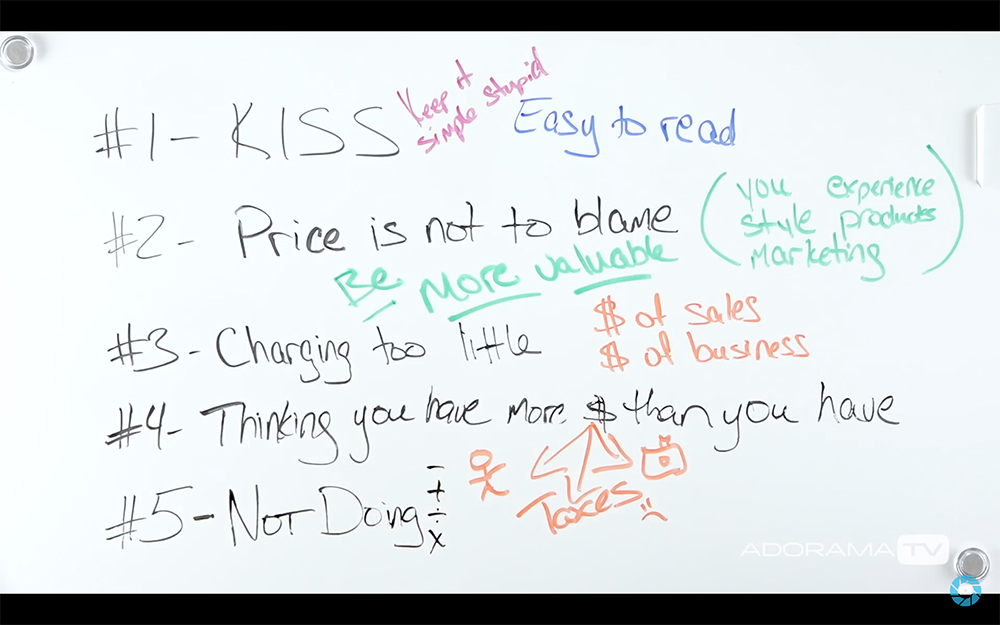 #1 - KISS Keep it simple stupid Easy to read
#2 - Price is not to blame (you experience style products marketing)
Be More valuable
#3 - Charging too little $ of sales
$ of business
#4 - Thinking you have more $ than you have
#5 - Not Doing - + ÷ x
Taxes
ADORAMA TV